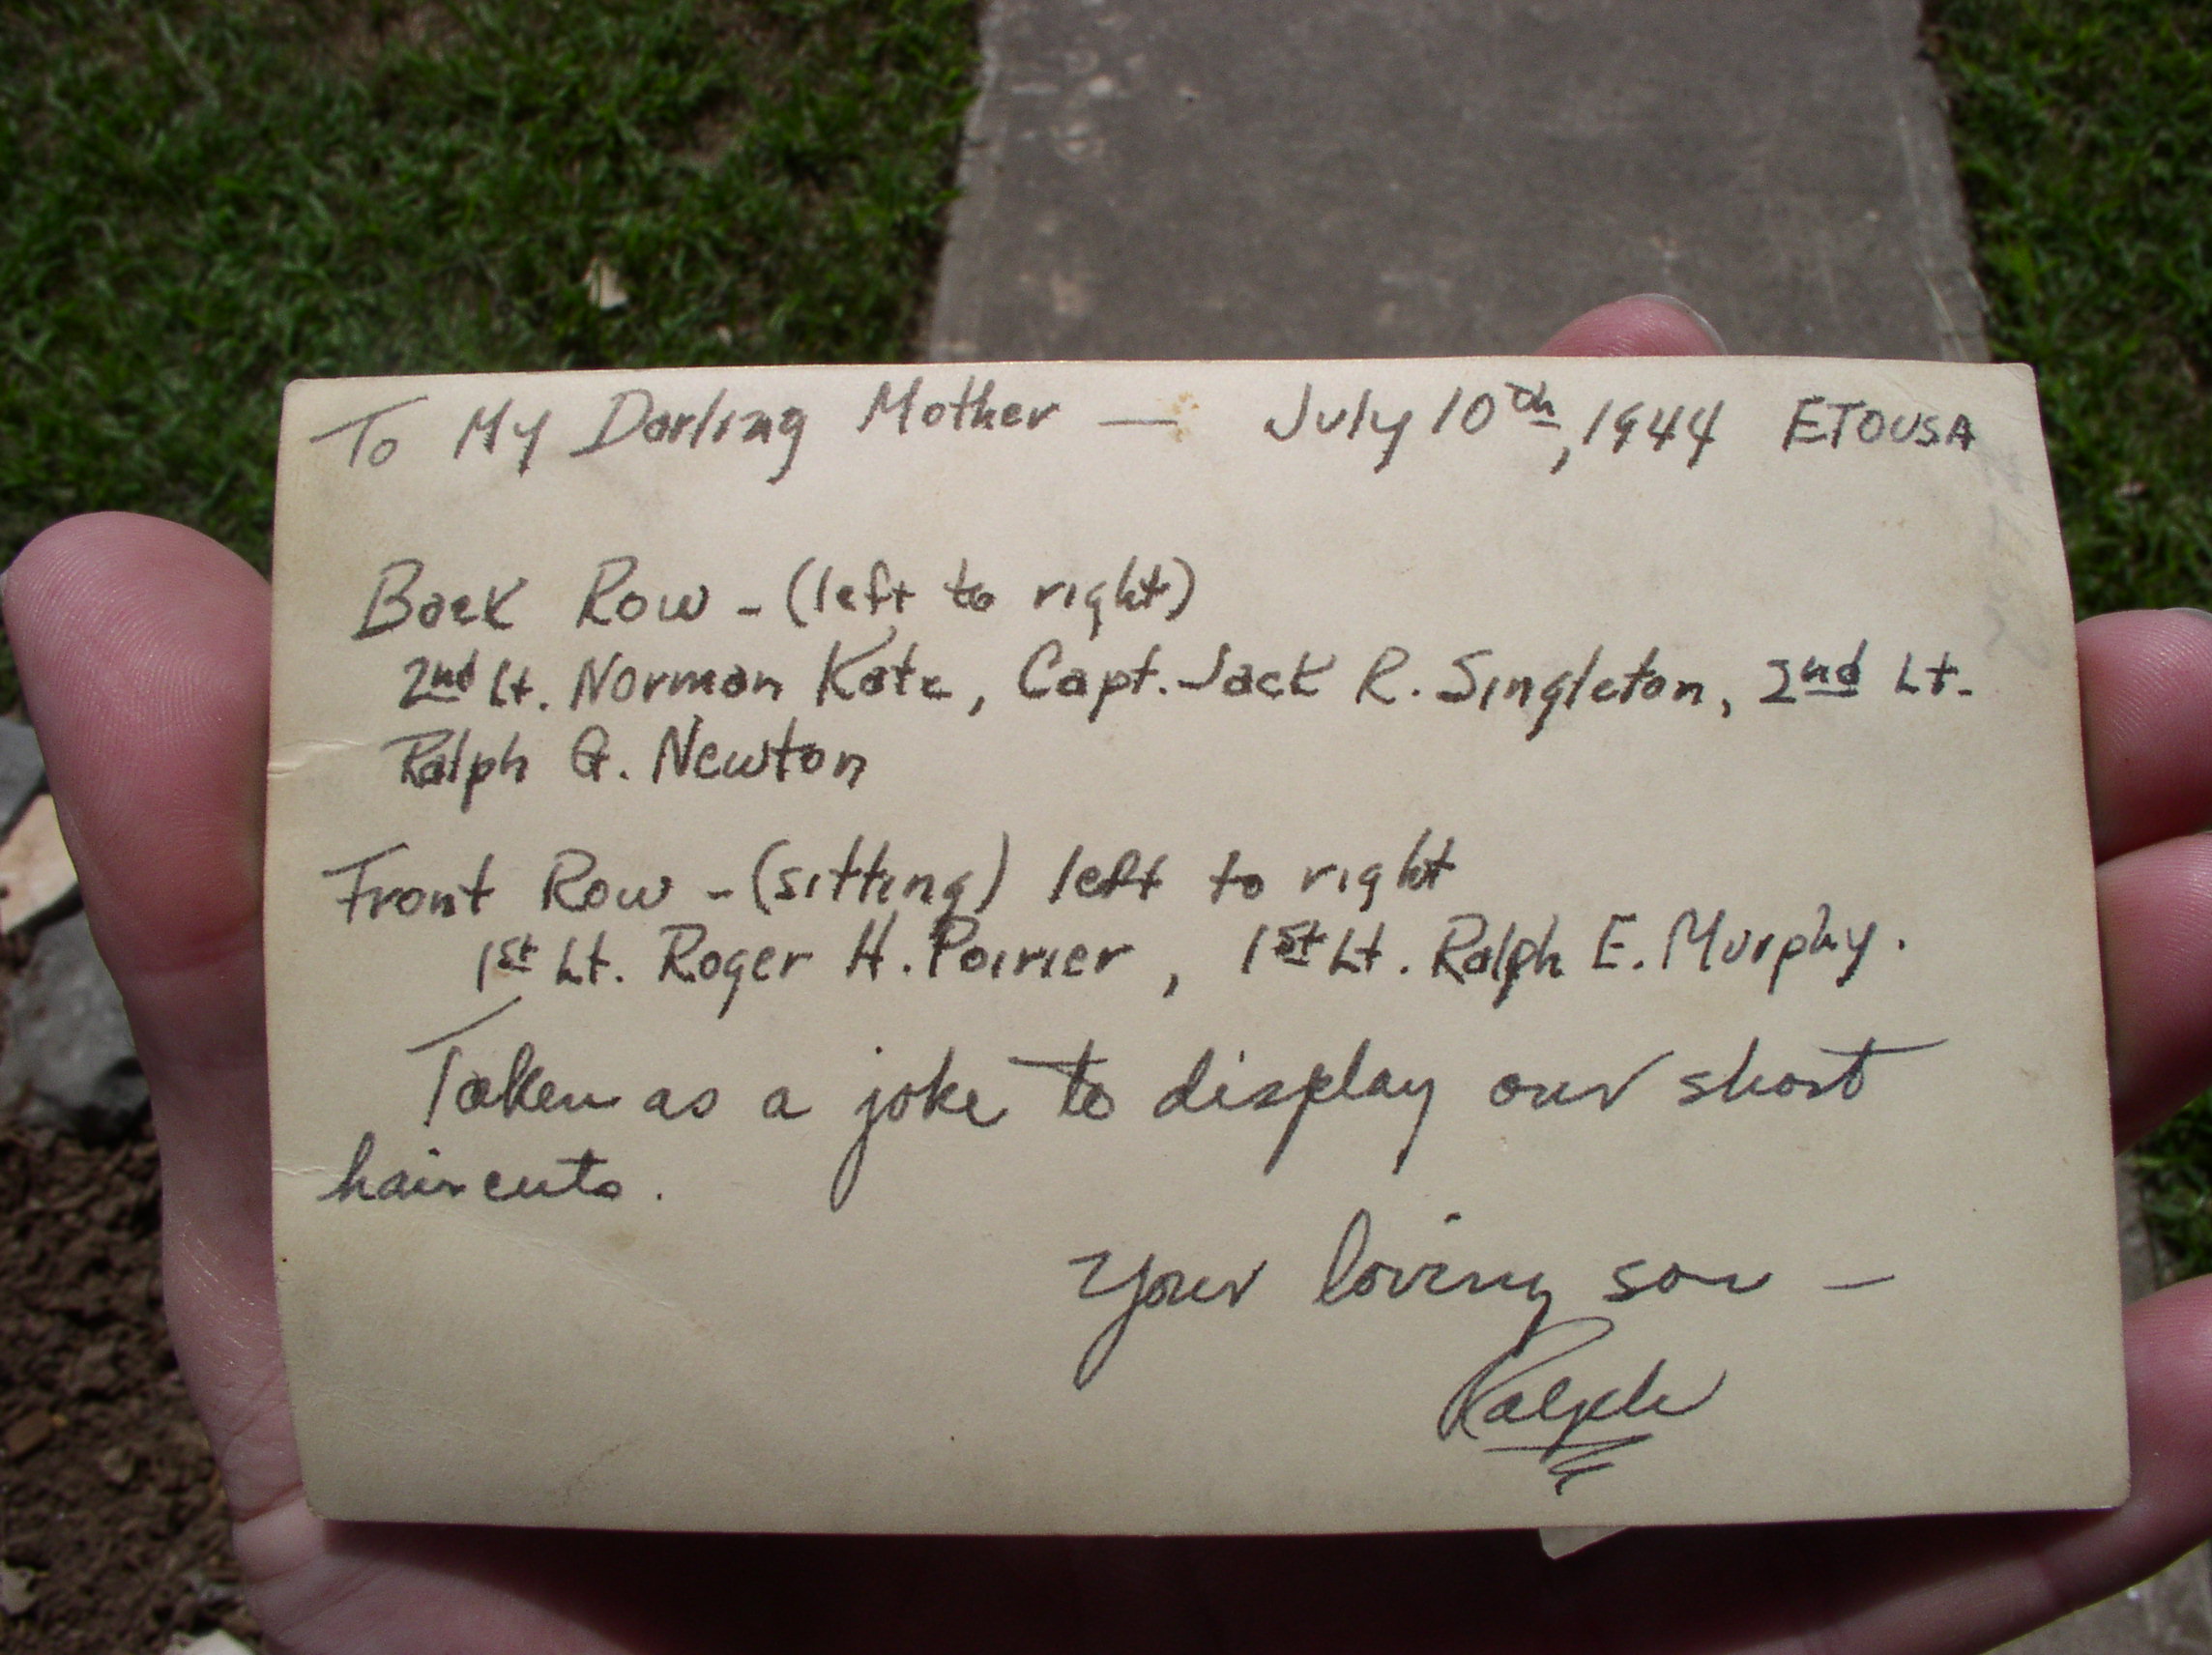 To My Darling Mother — July 10th, 1944 ETOUSA
Back Row - (left to right)
2nd Lt. Norman Katz, Capt. Jack R. Singleton, 2nd Lt.
Ralph G. Newton
Front Row - (sitting) left to right
1st Lt. Roger H. Poirier, 1st Lt. Ralph E. Murphy.
Taken as a joke to display our short
haircuts.
Your loving son —
Ralph